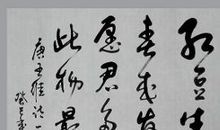 红豆生
春来发
愿君多
此物最
唐王维诗一